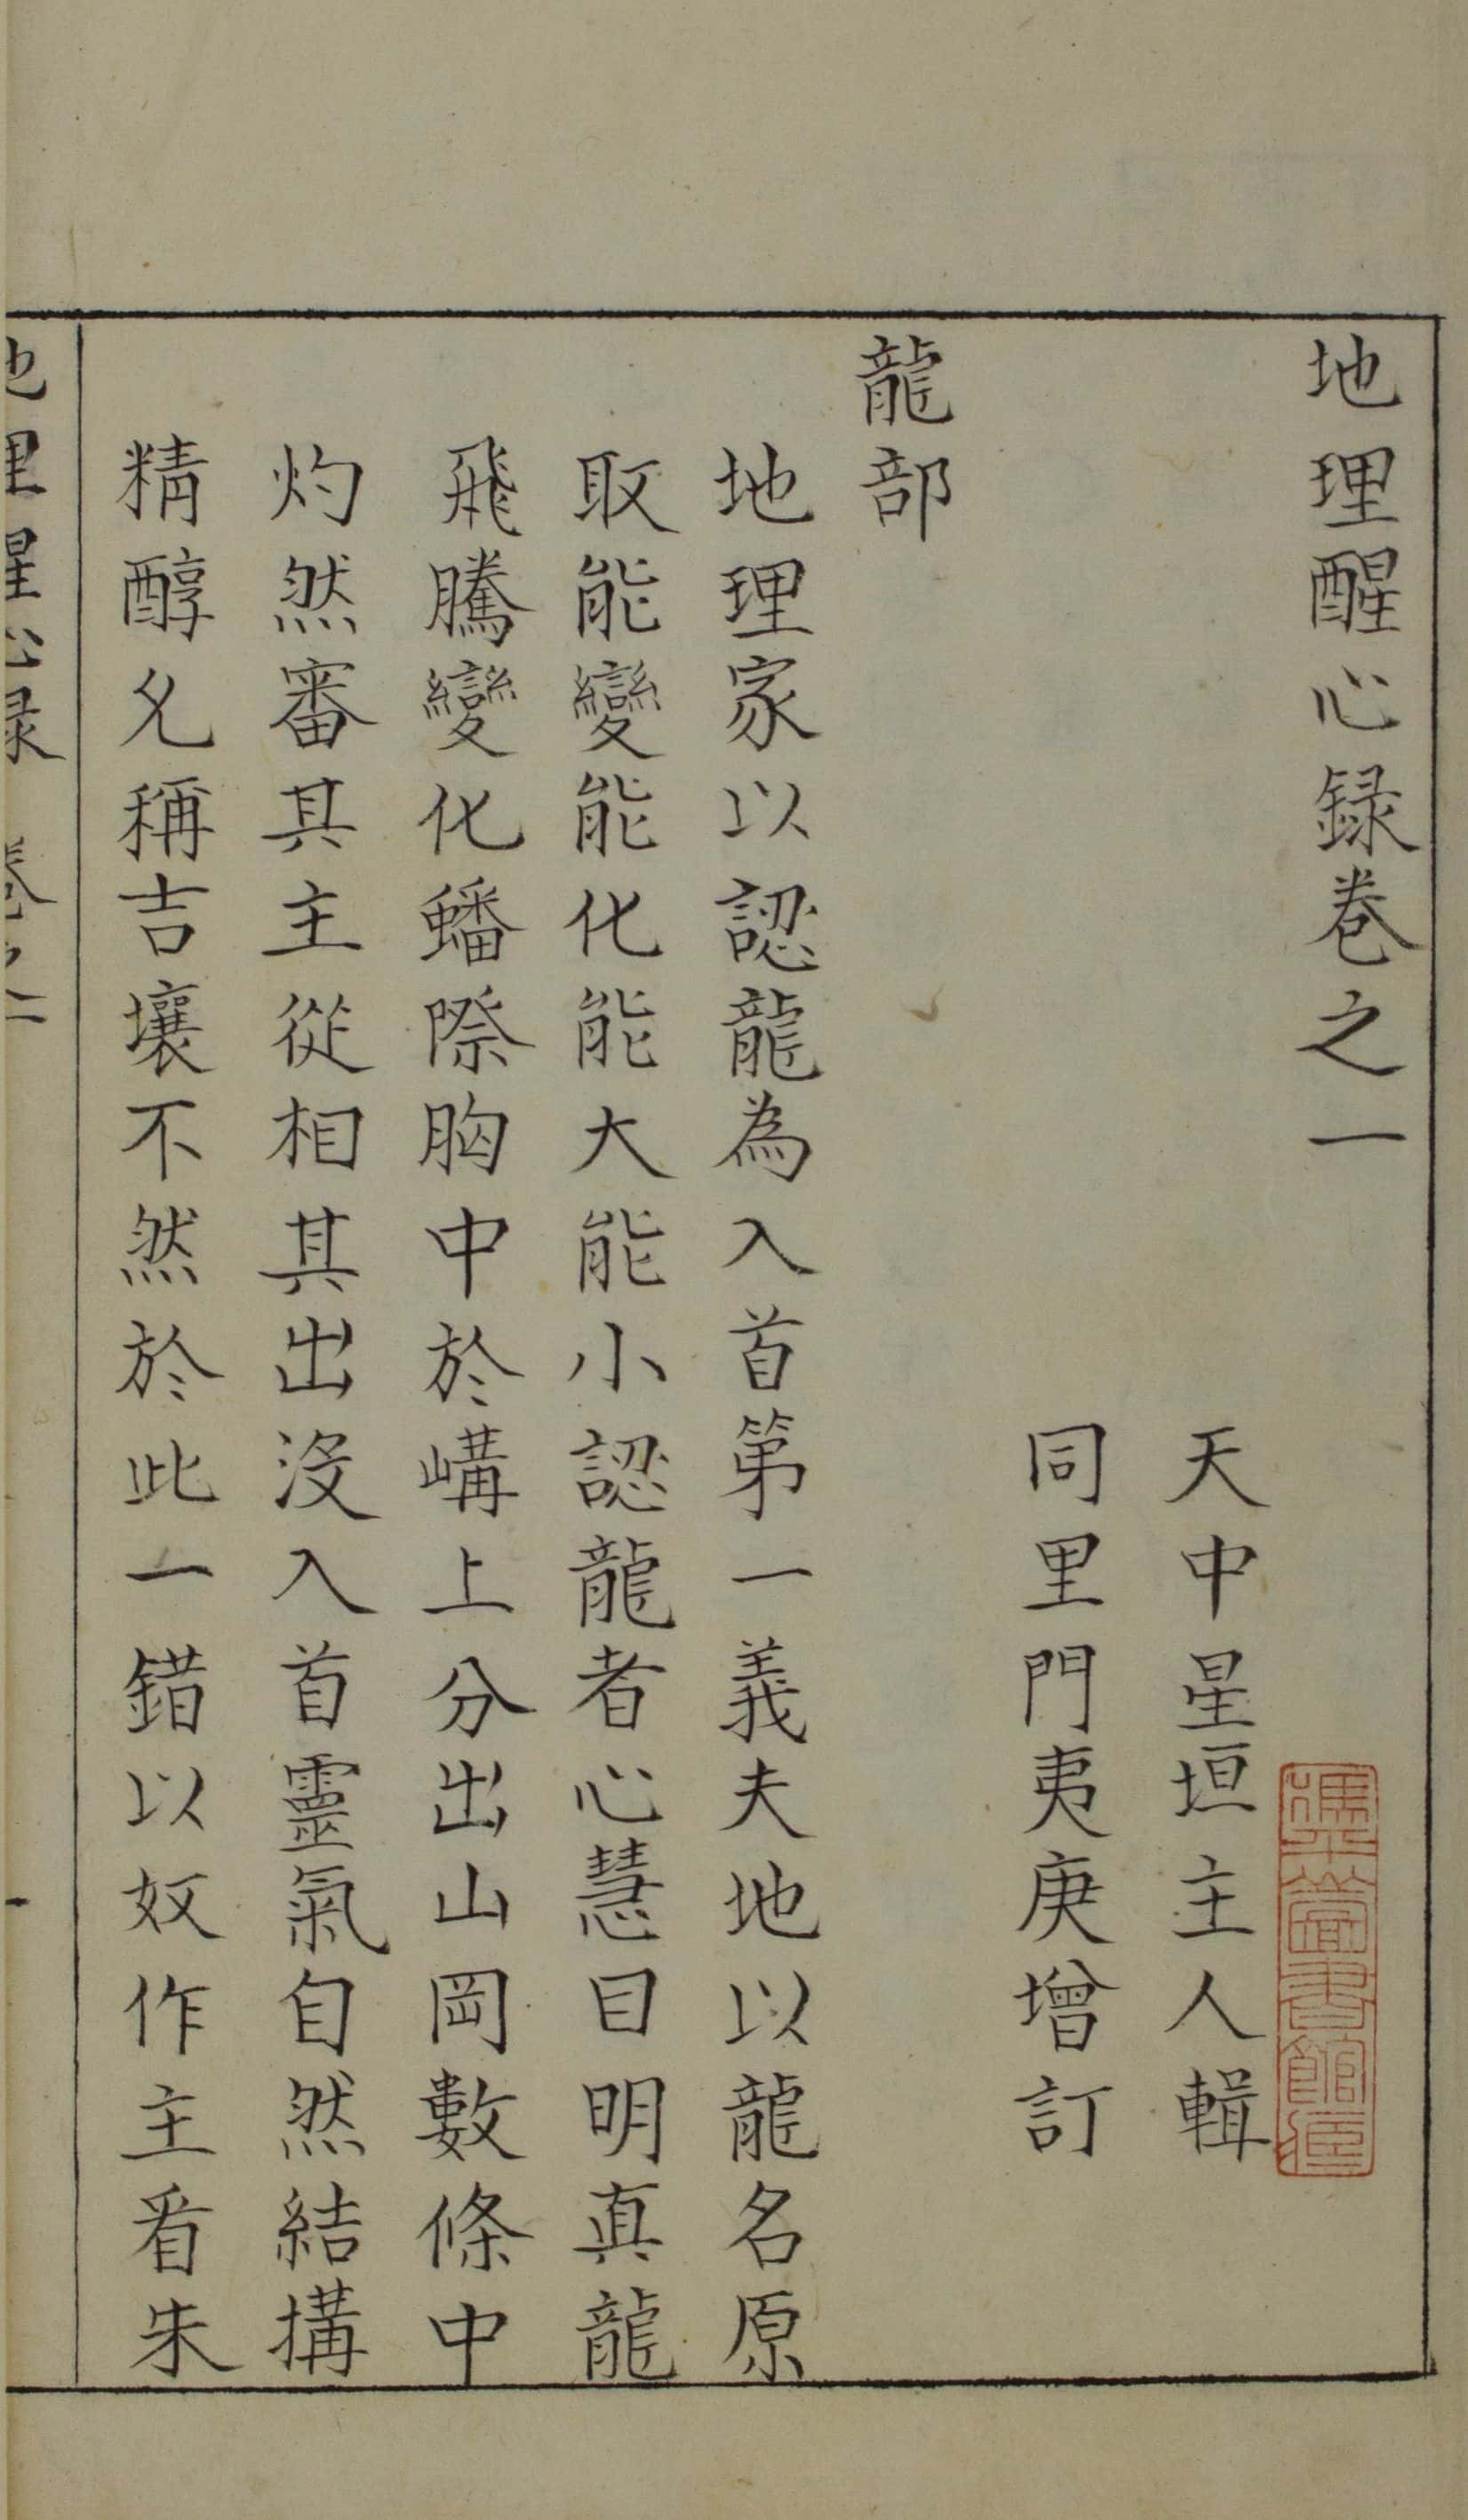 地理醒心録卷之一
天中星垣主人輯
同里門夷庚增訂
龍部
地理家以認龍為入首第一義夫地以龍名原
取能變能化能大能小認龍者心慧目明真龍
飛騰變化蟠際胸中於嶹上分出山岡數條中
灼然審其主從相其出沒入首靈氣自然結搆
精醇允稱吉壤不然於此一錯以奴作主看朱